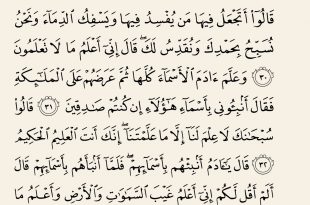 قَالُوٓا۟ أَتَجْعَلُ فِيهَا مَن يُفْسِدُ فِيهَا وَيَسْفِكُ ٱلدِّمَآءَ وَنَحْنُ
نُسَبِّحُ بِحَمْدِكَ وَنُقَدِّسُ لَكَ ۖ قَالَ إِنِّىٓ أَعْلَمُ مَا لَا تَعْلَمُونَ
٣٠ وَعَلَّمَ ءَادَمَ ٱلْأَسْمَآءَ كُلَّهَا ثُمَّ عَرَضَهُمْ عَلَى ٱلْمَلَـٰٓئِكَةِ
فَقَالَ أَنۢبِـُٔونِى بِأَسْمَآءِ هَـٰٓؤُلَآءِ إِن كُنتُمْ صَـٰدِقِينَ ٣١ قَالُوا۟
سُبْحَـٰنَكَ لَا عِلْمَ لَنَآ إِلَّا مَا عَلَّمْتَنَآ ۖ إِنَّكَ أَنتَ ٱلْعَلِيمُ ٱلْحَكِيمُ
٣٢ قَالَ يَـٰٓـَٔادَمُ أَنۢبِئْهُم بِأَسْمَآئِهِمْ ۖ فَلَمَّآ أَنۢبَأَهُم بِأَسْمَآئِهِمْ قَالَ
أَلَمْ أَقُل لَّكُمْ إِنِّىٓ أَعْلَمُ غَيْبَ ٱلسَّمَـٰوَٰتِ وَٱلْأَرْضِ وَأَعْلَمُ مَا